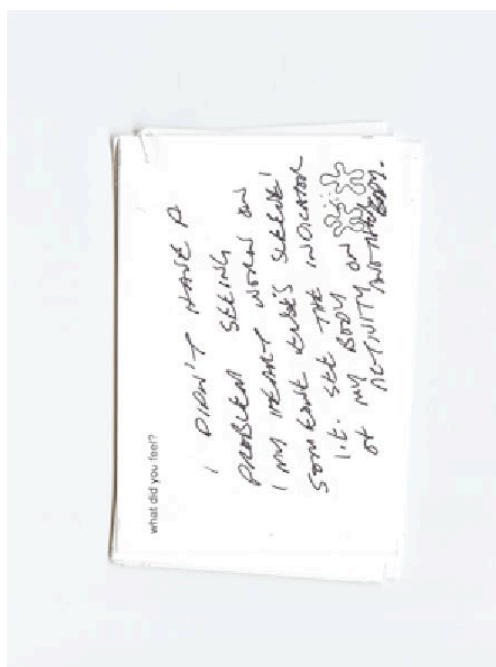 what did you feel?
I DIDN'T HAVE A
PROBLEM SEEING
'MY HEART WORN ON
SOMEONE ELSE'S SLEEVE'
I.E. SEE THE INDICATOR
OF MY BODY
ACTIVITY ON
ANOTHER BODY.